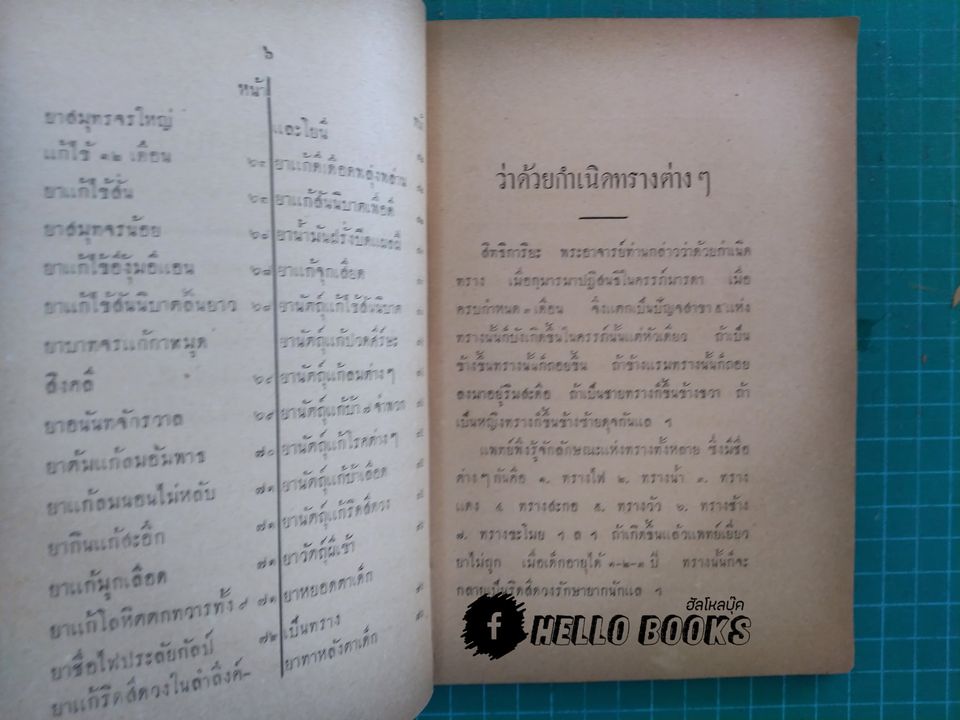 ๖
หน้า
ยาสมุทรจรใหญ่
แก้ไข้ ๑๒ เดือน
ยาแก้ไข้สั่น
ยาสมุทจรน้อย
ยาแก้ไข้สันนิบาตสั่นยาว
ยาบาทจรแก้กาหมุด
สิงคลี
ยาอนันทจักรวาล ๖๙
ยาต้มแก้ลมอัมพาธ ๗๐
ยาแก้ลมนอนไม่หลับ ๗๑
ยากินแก้สะอึก ๗๑
ยาแก้มูกเลือด ๗๑
ยาแก้โลหิตตกทวารทั้ง ๙ ๗๑
ยาชื่อไฟประลัยกัลป์ ๗๒
ยาแก้ริดสีดวงในลำลึงค์-
และโยนี
ยาแก้ดีเดือดพลุ่งพล่าน
ยาแก้สันนิบาตเพื่อดี
ยาน้ำมันฝรั่งปิดแผลฝี
ยาแก้จุกเสียด
ยานัตถุ์แก้ไข้สันนิบาต
ยานัตถุ์แก้ปวดศีร์ษะ
ยานัตถุ์แก้ลมต่าง ๆ
ยานัตถุ์แก้บ้า ๗ จำพวก
ยานัตถุ์แก้โรคต่าง ๆ
ยานัตถุ์แก้บ้าเลือด
ยานัตถุ์แก้ริดสีดวง
ยาวัตถุ์ผีเข้า
ยาหยอดตาเด็ก
เป็นทราง
ยาทาหลังตาเด็ก
ว่าด้วยกำเนิดทรางต่าง ๆ
สิทธิการิยะ พระอาจารย์ท่านกล่าวว่าด้วยกำเนิด
ทราง เมื่อกุมารมาปฏิสนธิในครรภ์มารดา เมื่อ
ครบกำหนด ๓ เดือน จึงแตกเป็นปัญจสาขา ๕ แห่ง
ทรางนั้นก็บังเกิดขึ้นในครรภ์นั้นแต่หัวเดียว ถ้าเป็น
ข้างขึ้นทรางนั้นก็ถอยขึ้น ถ้าข้างแรมทรางนั้นก็ถอย
ลงมาอยู่ริมสะดือ ถ้าเป็นชายทรางก็ขึ้นข้างขวา ถ้า
เป็นหญิงทรางก็ขึ้นข้างซ้ายดุจกันแล ฯ
แพทย์พึงรู้จักลักษณะแห่งทรางทั้งหลาย ซึ่งมีชื่อ
ต่าง ๆ กันคือ ๑. ทรางไฟ ๒. ทรางน้ำ ๓. ทราง
แดง ๔. ทรางสะกอ ๕. ทรางวัว ๖. ทรางช้าง
๗. ทรางขะโมย ฯ ล ฯ ถ้าเกิดขึ้นแล้วแพทย์เยียว
ยาไม่ถูก เมื่อเด็กอายุได้ ๑-๒-๓ ปี ทรางนั้นก็จะ
กลายเป็นริดสีดวงรักษายากนักแล ฯ
ฮัลโหลบุ๊ค
HELLO BOOKS